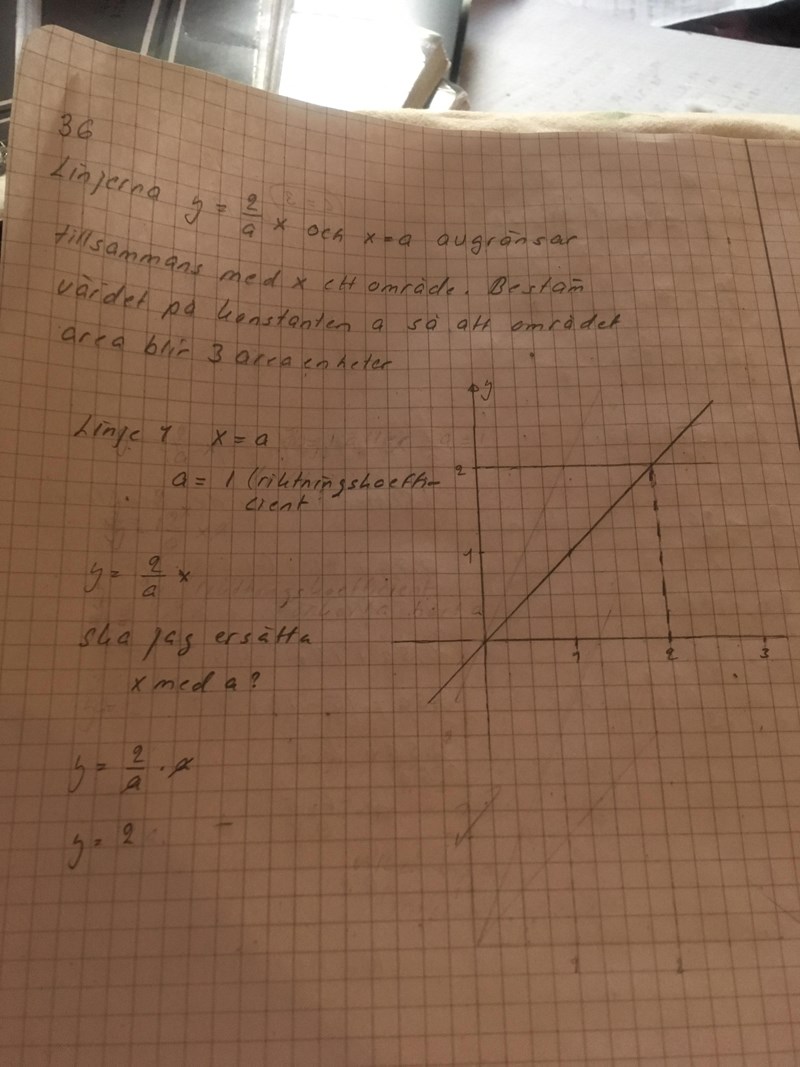 36
Linjerna y = 2/a x och x=a avgränsar
tillsammans med x ett område. Bestäm
värdet på konstanten a så att området
area blir 3 areaenheter
Linje 1 x = a
a = 1 (riktningskoeffi-
cient
y = 2/a x
ska jag ersätta
x med a?
y = 2/a · a
y = 2
y
2
1
1 2 3